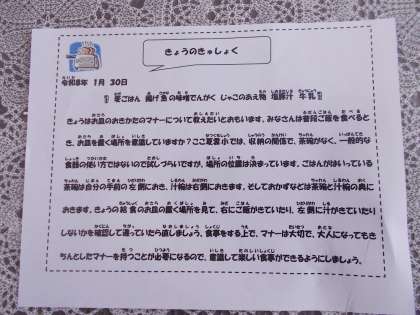 きょうのきゅしょく
令和8年 1月 30日
麦ごはん 揚げ魚の味噌でんがく じゃこのあえ物 塩豚汁 牛乳
きょうはお皿のおきかたのマナーについて教えたいとおもいます。みなさんは普段ご飯を食べると
き、お皿を置く場所を意識していますか？ここ夏雲小では、収納の関係で、茶碗がなく、一般的な
食器の使い方ではないので試しづらいですが、場所の位置は決まっています。ごはんがはいっている
茶碗は自分の手前の左側におき、汁椀は右側におきます。そしておかずなどは茶碗と汁椀の奥に
おきます。きょうの給食のお皿の置く場所を見て、右にご飯がきていたり、左側に汁がきていたり
しないかを確認して違っていたら直しましょう。食事をする上で、マナーは大切で、大人になってもき
ちんとしたマナーを持つことが必要になるので、意識して楽しい食事ができるようにしましょう。